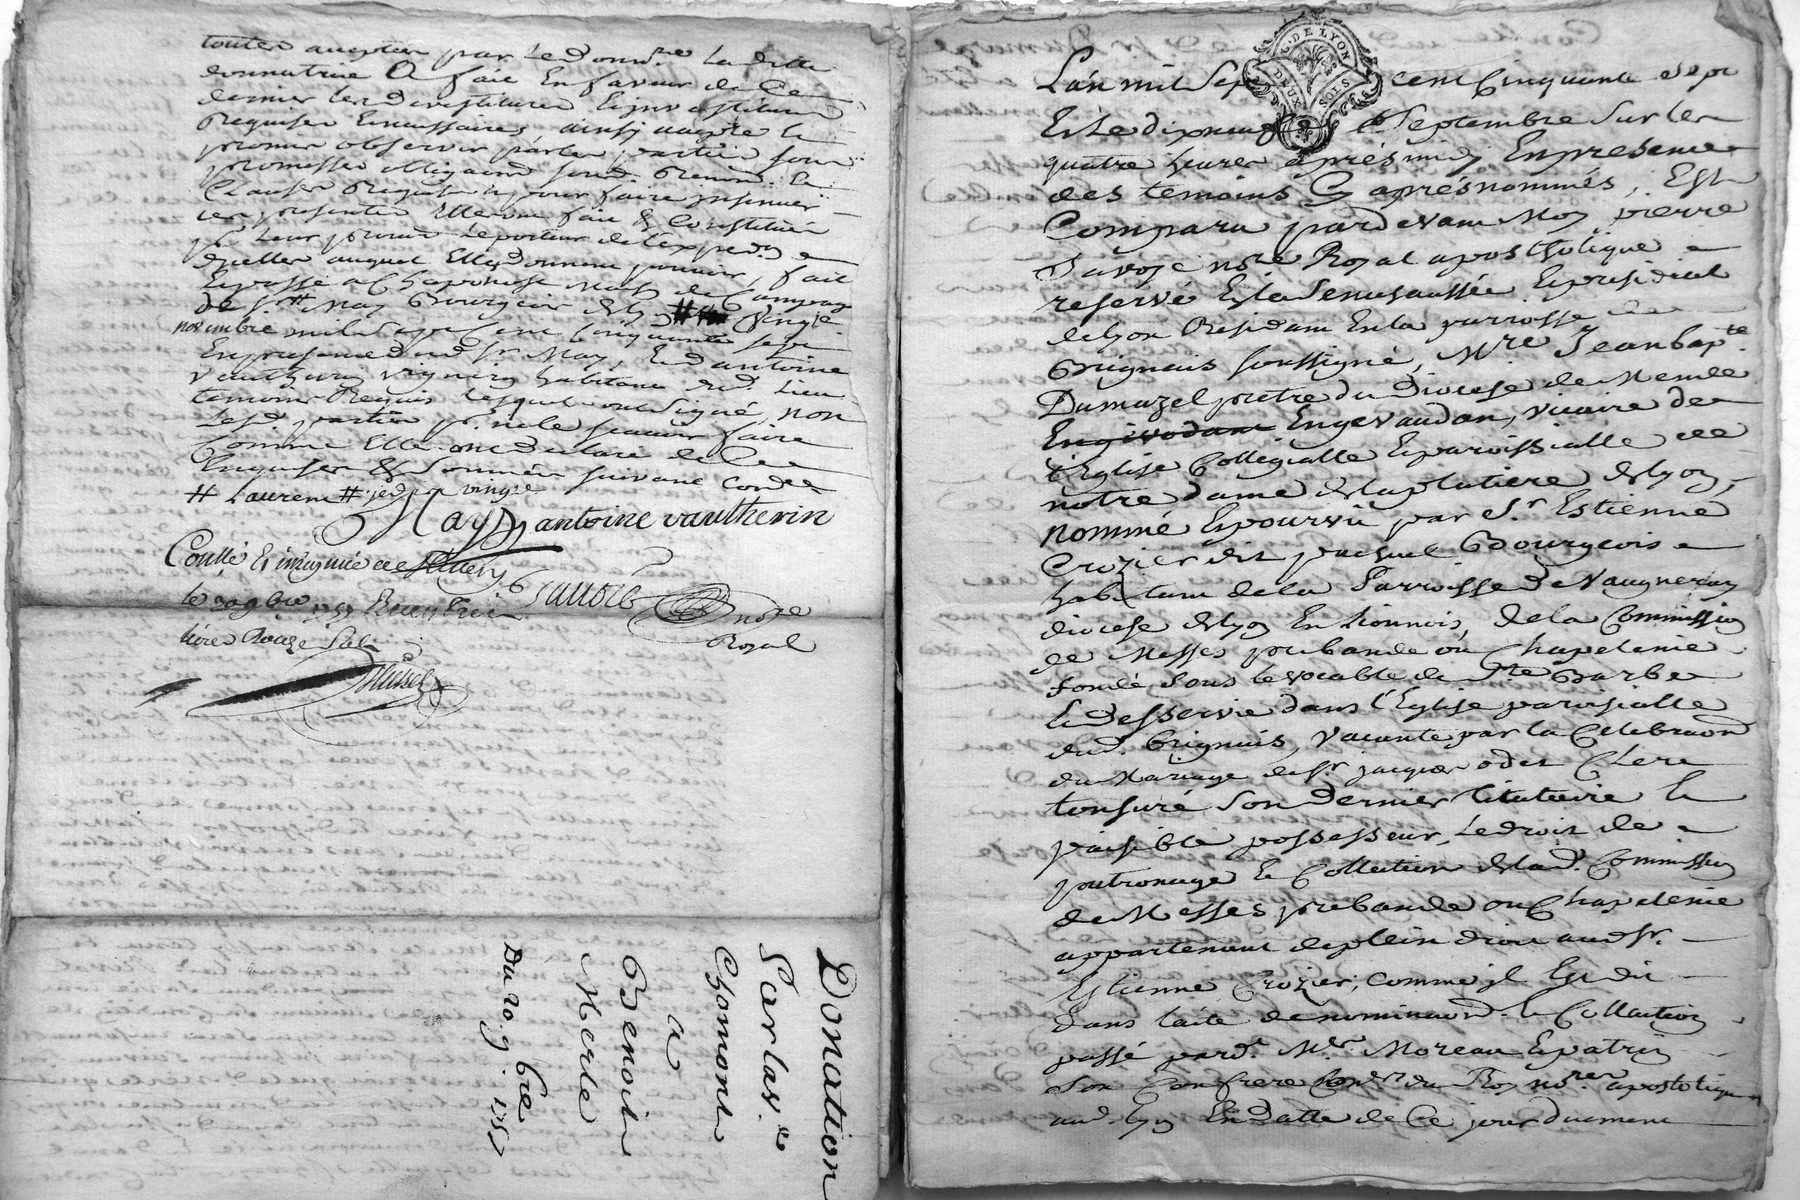 toutes acceptées par le donre. la ditte
donnatrice a fait en faveur de ce
dernier les devestitures & investitures
requises & necessaires, ainsy accepté &
promis observer par les parties sous
promesses obligaons soumd. renond. &
Clauses requises, & pour faire insinuer
ces presentes
pr. leur procur le porteur de l'expedon
d'icelles auquel elles donnent pouvoir, fait
& passé a Chaponost maison de Campagne
de sr. # May Bourgeois de Lyon ## vingt
novembre mil sept cent cinquante sept
En presence dud. sr. May, & d'antoine
vautherin vigneron habitant aud. lieu
temoins requis lesquels ont signé, non
lesd. parties pr. ne le scavoir faire
comme elles ont declaré de ce
enquises & sommées suivant l'ordce
# Laurent # jed vingt
May antoine vautherin
Conllé & insinué a
le 30 9bre 1757 Reçu trei
livres douze sols
not re
Royal
Donation
Sarlas
Chomont
a
Benoit
Merle
Du 20. 9. bre
1757
G. DE LYON
DEUX SOLS
L'an mil sept cent Cinquante sept
Et le dixneuf de Septembre Sur les
quatre heures après midy En presence
des temoins Cy après nommés, Est
Comparu pardevant Moy pierre
notre Royal apostholique
reservé En la Senechaussée & presidial
de Lyon Residant En la parroisse de
Grignais soussigné, Mre Jean bapte
Dumazel pretre du Diocese de Mende
En givodant En gevaudan, vicaire de
l'Eglise Collegialle & paroissialle de
notre dame de la platiere de Lyon,
nommé & pourvû par Sr Estienne
Crozier dit paquet Bourgeois
habitant de la Parroisse De Vaugneray
diocese de Lyon En Lionnois, de la Commission
de Messes prebande ou Chapelenie
fondé Sous le vocable de Ste Barbe
& Desservie dans l'Eglise paroisialle
dud. Grignais, vacante par la Celebraon
du Mariage de sr. jacques odet Clerc
tonsuré Son dernier titutaire &
paisible possesseur, Le droit de
patronage & Collation de lad. Commission
de Messes prebande ou Chapelenie
appartenant de plein droit aud. sr.
Estienne Crozier, comme il Est dit
dans l'acte de nominaon. & Collation
passé pard. Me Moreau & patrin
Son Confrere Coner du Roy nores apostoliques
aud. Lyon En datte de Ce jour duement